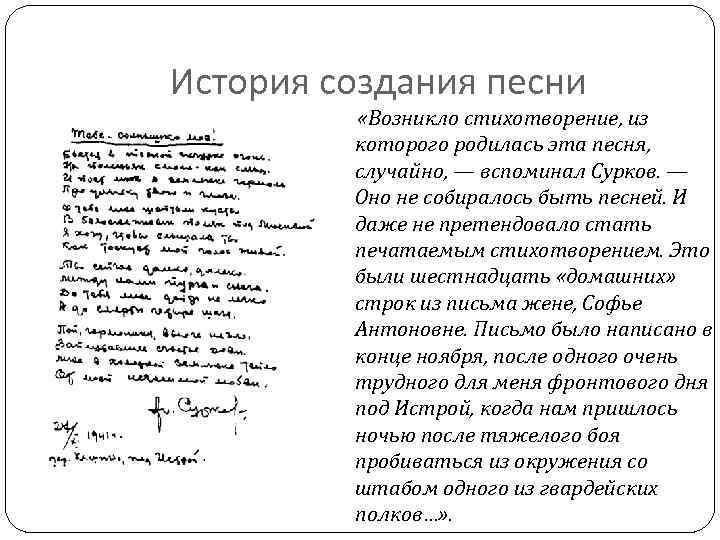 История создания песни
Тебе — солнышко моё!
Бьется в тесной печурке огонь.
На поленьях смола — как слеза.
И поет мне в землянке гармонь
Про улыбку твою и глаза.
О тебе мне шептали кусты
В белоснежных полях под Москвой
Я хочу, чтобы слышала ты
Как тоскует мой голос живой.
Ты сейчас далеко, далеко
Между нами пурга и снега.
До тебя мне дойти не легко
А до смерти четыре шага.
Пой, гармоника, вьюге назло.
Заплутавшее счастье зови
Мне в холодной землянке тепло
От моей негасимой любви.
Сурков
1941 г.
под Истрой.
«Возникло стихотворение, из
которого родилась эта песня,
случайно, — вспоминал Сурков. —
Оно не собиралось быть песней. И
даже не претендовало стать
печатаемым стихотворением. Это
были шестнадцать «домашних»
строк из письма жене, Софье
Антоновне. Письмо было написано в
конце ноября, после одного очень
трудного для меня фронтового дня
под Истрой, когда нам пришлось
ночью после тяжелого боя
пробиваться из окружения со
штабом одного из гвардейских
полков…».